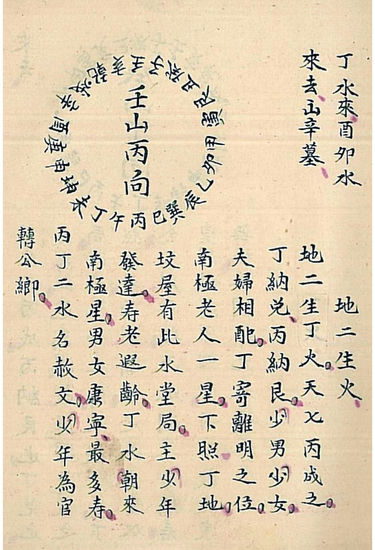 丁水來酉卯水
來去山辛墓
壬山丙向
壬子癸丑艮寅甲卯乙辰巽巳丙午丁未坤申庚酉辛戌乾亥
地二生火
地二生丁火。天七丙成之。
丁納兌丙納艮。少男少女。
夫婦相配。丁寄離明之位。
南極老人一星。下照丁地。
坟屋有此水堂局。主少年
發達。寿老遐齡。丁水朝來
南極星。男女康寧最多寿。
丙丁二水名赦文。少年為官
轉公卿。